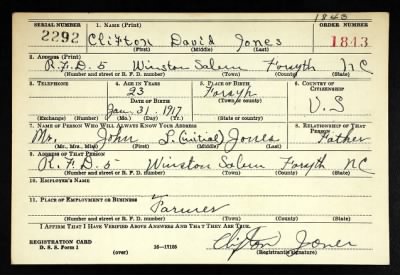 1843
SERIAL NUMBER 1. NAME (Print) ORDER NUMBER
2292 Clifton David Jones 1843
(First) (Middle) (Last)
2. ADDRESS (Print)
R.F.D. 5 Winston Salem Forsyth NC
(Number and street or R. F. D. number) (Town) (County) (State)
3. TELEPHONE 4. AGE IN YEARS 5. PLACE OF BIRTH 6. COUNTRY OF CITIZENSHIP
23 Forsyth
DATE OF BIRTH (Town or county) U.S
Jan. 31, 1917
(Exchange) (Number) (Mo.) (Day) (Yr.) (State or country)
7. NAME OF PERSON WHO WILL ALWAYS KNOW YOUR ADDRESS 8. RELATIONSHIP OF THAT PERSON
Mr. John S. (initial) Jones Father
(Mr., Mrs., Miss) (First) (Middle) (Last)
9. ADDRESS OF THAT PERSON
R.F.D. 5 Winston Salem Forsyth NC
(Number and street or R. F. D. number) (Town) (County) (State)
10. EMPLOYER'S NAME
11. PLACE OF EMPLOYMENT OR BUSINESS
Farmer
(Number and street or R. F. D. number) (Town) (County) (State)
I AFFIRM THAT I HAVE VERIFIED ABOVE ANSWERS AND THAT THEY ARE TRUE.
REGISTRATION CARD Clifton Jones
D. S. S. Form 1 (over) 16-17105 (Registrant's signature)